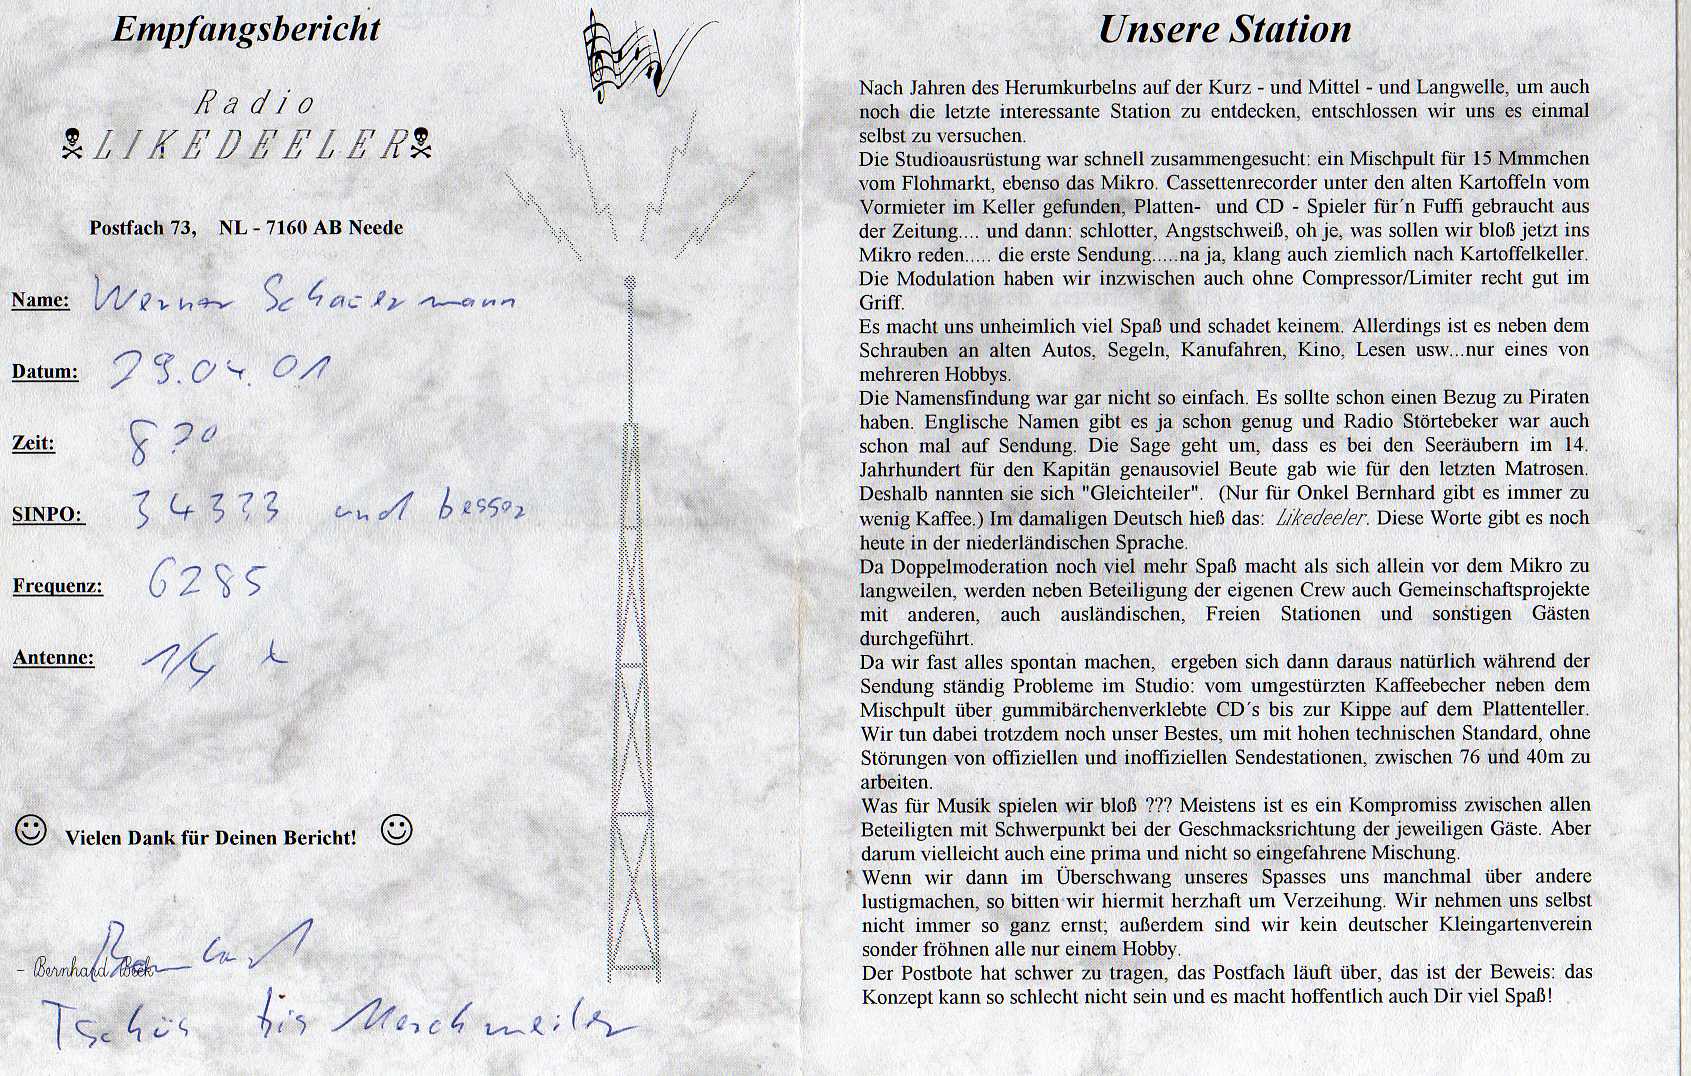 Empfangsbericht
Radio
LIKEDEELER
Postfach 73, NL - 7160 AB Neede
Name: Werner Schaermann
Datum: 29.04.01
Zeit:
SINPO: und besser
Frequenz: 6285
Antenne: 1/4
Vielen Dank für Deinen Bericht!
Bernhard
- Bernhard
Tschüs bis Merchweiler
Unsere Station
Nach Jahren des Herumkurbelns auf der Kurz - und Mittel - und Langwelle, um auch
noch die letzte interessante Station zu entdecken, entschlossen wir uns es einmal
selbst zu versuchen.
Die Studioausrüstung war schnell zusammengesucht: ein Mischpult für 15 Mmmchen
vom Flohmarkt, ebenso das Mikro. Cassettenrecorder unter den alten Kartoffeln vom
Vormieter im Keller gefunden, Platten- und CD - Spieler für´n Fuffi gebraucht aus
der Zeitung.... und dann: schlotter, Angstschweiß, oh je, was sollen wir bloß jetzt ins
Mikro reden..... die erste Sendung.....na ja, klang auch ziemlich nach Kartoffelkeller.
Die Modulation haben wir inzwischen auch ohne Compressor/Limiter recht gut im
Griff.
Es macht uns unheimlich viel Spaß und schadet keinem. Allerdings ist es neben dem
Schrauben an alten Autos, Segeln, Kanufahren, Kino, Lesen usw...nur eines von
mehreren Hobbys.
Die Namensfindung war gar nicht so einfach. Es sollte schon einen Bezug zu Piraten
haben. Englische Namen gibt es ja schon genug und Radio Störtebeker war auch
schon mal auf Sendung. Die Sage geht um, dass es bei den Seeräubern im 14.
Jahrhundert für den Kapitän genausoviel Beute gab wie für den letzten Matrosen.
Deshalb nannten sie sich "Gleichteiler". (Nur für Onkel Bernhard gibt es immer zu
wenig Kaffee.) Im damaligen Deutsch hieß das: Likedeeler. Diese Worte gibt es noch
heute in der niederländischen Sprache.
Da Doppelmoderation noch viel mehr Spaß macht als sich allein vor dem Mikro zu
langweilen, werden neben Beteiligung der eigenen Crew auch Gemeinschaftsprojekte
mit anderen, auch ausländischen, Freien Stationen und sonstigen Gästen
durchgeführt.
Da wir fast alles spontan machen, ergeben sich dann daraus natürlich während der
Sendung ständig Probleme im Studio: vom umgestürzten Kaffeebecher neben dem
Mischpult über gummibärchenverklebte CD´s bis zur Kippe auf dem Plattenteller.
Wir tun dabei trotzdem noch unser Bestes, um mit hohen technischen Standard, ohne
Störungen von offiziellen und inoffiziellen Sendestationen, zwischen 76 und 40m zu
arbeiten.
Was für Musik spielen wir bloß ??? Meistens ist es ein Kompromiss zwischen allen
Beteiligten mit Schwerpunkt bei der Geschmacksrichtung der jeweiligen Gäste. Aber
darum vielleicht auch eine prima und nicht so eingefahrene Mischung.
Wenn wir dann im Überschwang unseres Spasses uns manchmal über andere
lustigmachen, so bitten wir hiermit herzhaft um Verzeihung. Wir nehmen uns selbst
nicht immer so ganz ernst; außerdem sind wir kein deutscher Kleingartenverein
sonder fröhnen alle nur einem Hobby.
Der Postbote hat schwer zu tragen, das Postfach läuft über, das ist der Beweis: das
Konzept kann so schlecht nicht sein und es macht hoffentlich auch Dir viel Spaß!